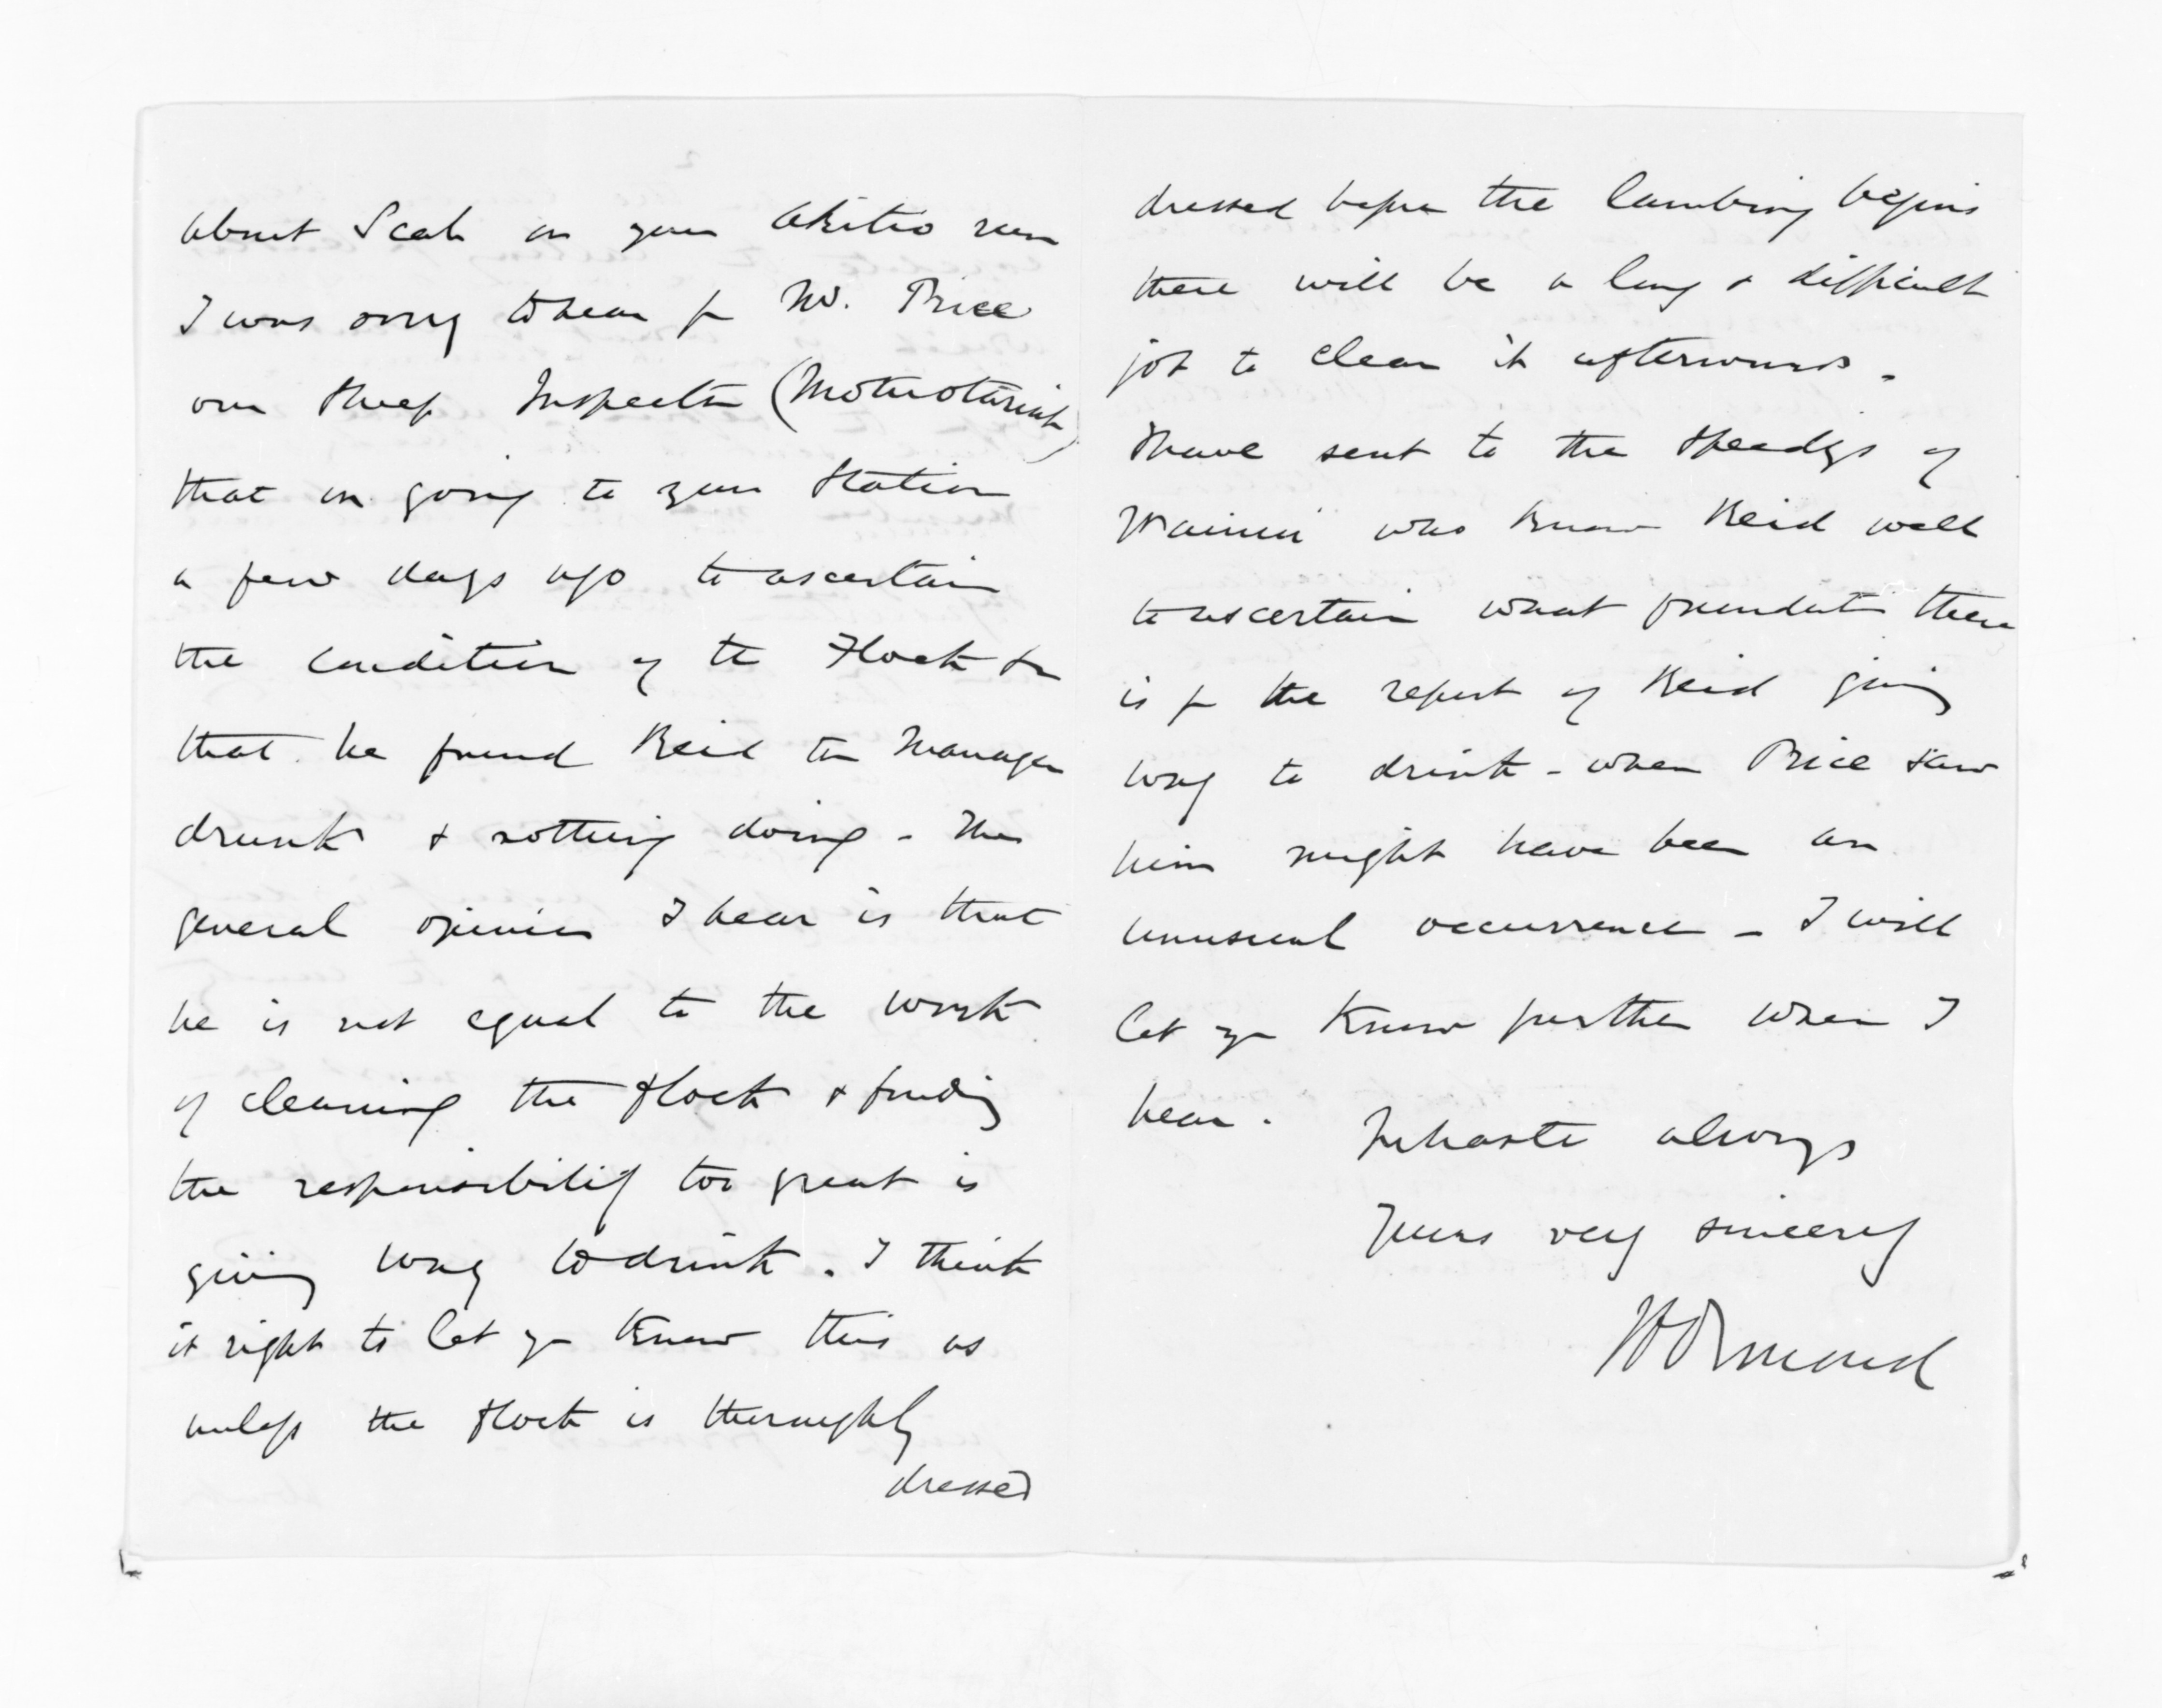 about Scab on your Akitio run
I was sorry to hear fr Mr. Price
our Sheep Inspector (Motuotaria)
that on going to your Station
a few days ago to ascertain
the condition of the Flock &c
that he found Reid the Manager
drunk & nothing doing - The
general opinion I hear is that
he is not equal to the work
of cleaning the flock & finding
the responsibility too great is
giving way to drink. I think
it right to let you know this as
unless the flock is thoroughly
dressed
dressed before the lambing begins
there will be a long & difficult
job to clean it afterwards.
I have sent to the Speedys of
Wainui who know Reid well
to ascertain what foundation there
is for the report of Reid giving
way to drink - when Price saw
him might have been an
unusual occurrence - I will
let you know further when I
hear.
In haste always
Yours very sincerely
JDOrmond